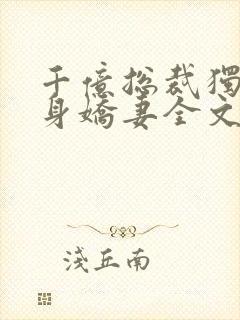 千億總裁獨
身嬌妻全文
淺丘南